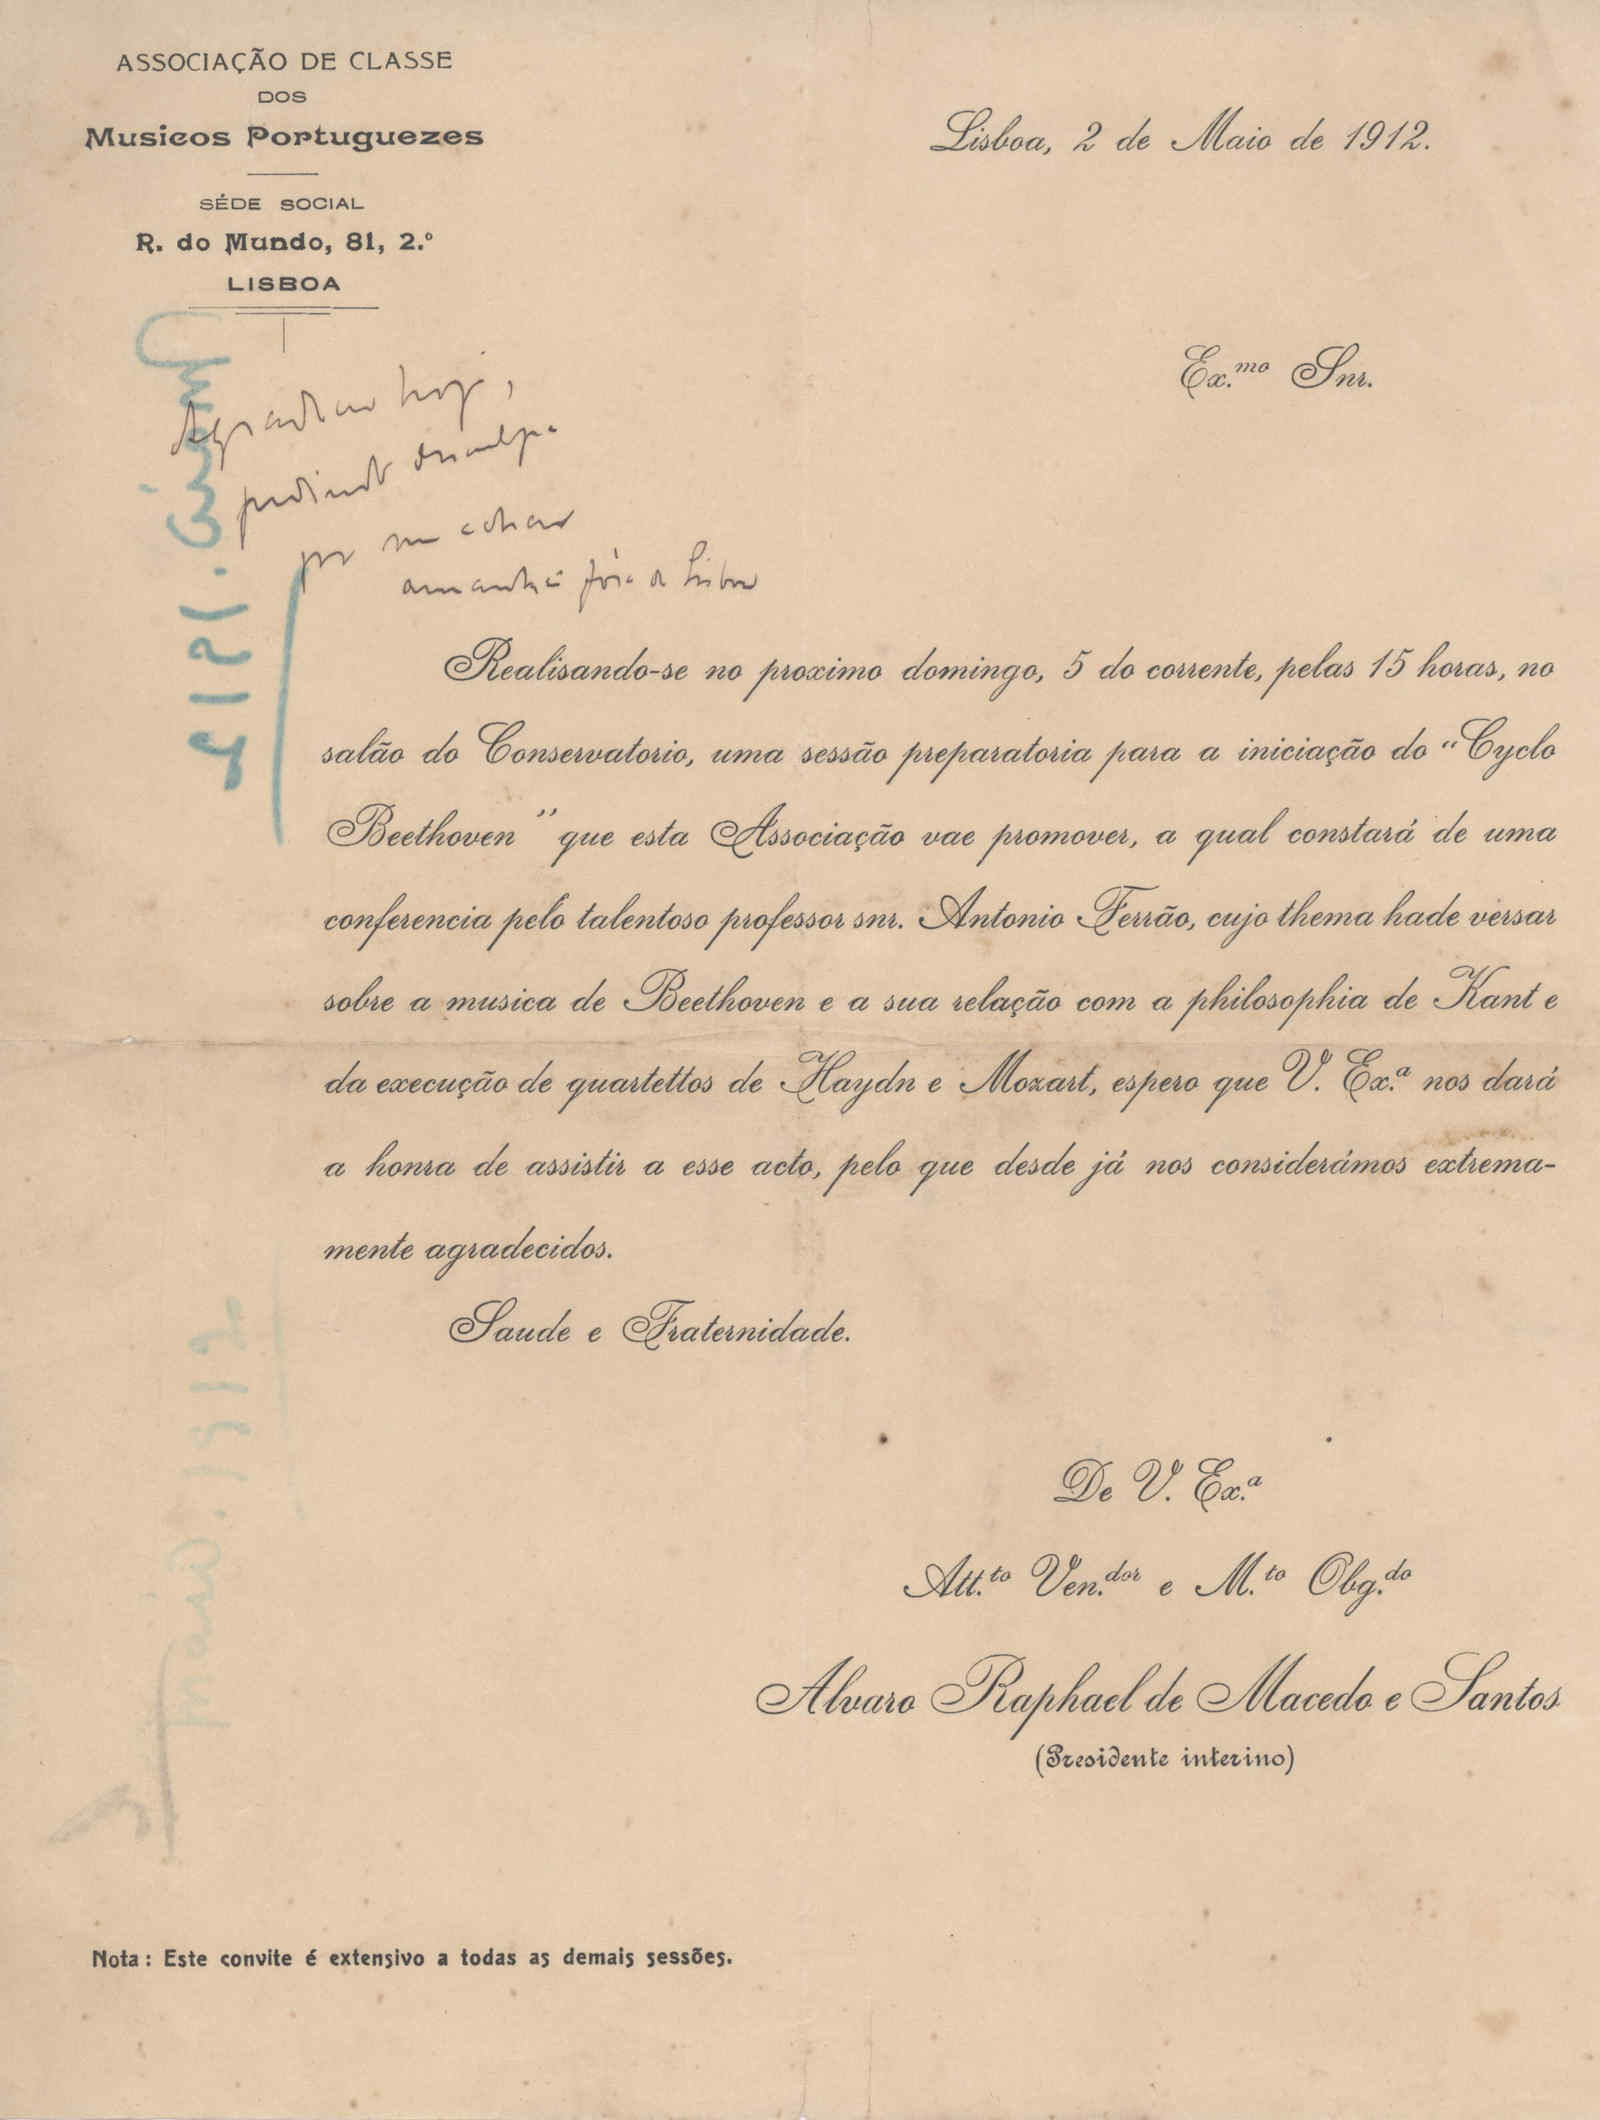 ASSOCIAÇÃO DE CLASSE
DOS
Musicos Portuguezes
SÉDE SOCIAL
R. do Mundo, 81, 2.º
LISBOA
Lisboa, 2 de Maio de 1912.
Ex.mo Snr.
Agradecer hoje,
pedindo desculpa
por me achar
amanhã fóra de Lisboa
1912
Realisando-se no proximo domingo, 5 do corrente, pelas 15 horas, no
salão do Conservatorio, uma sessão preparatoria para a iniciação do "Cyclo
Beethoven" que esta Associação vae promover, a qual constará de uma
conferencia pelo talentoso professor snr. Antonio Ferrão, cujo thema hade versar
sobre a musica de Beethoven e a sua relação com a philosophia de Kant e
da execução de quartettos de Haydn e Mozart, espero que V. Ex.ª nos dará
a honra de assistir a esse acto, pelo que desde já nos considerámos extrema-
mente agradecidos.
Saude e Fraternidade.
De V. Ex.ª
Att.to Ven.dor e M.to Obg.do
Alvaro Raphael de Macedo e Santos
(Presidente interino)
Nota: Este convite é extensivo a todas as demais sessões.